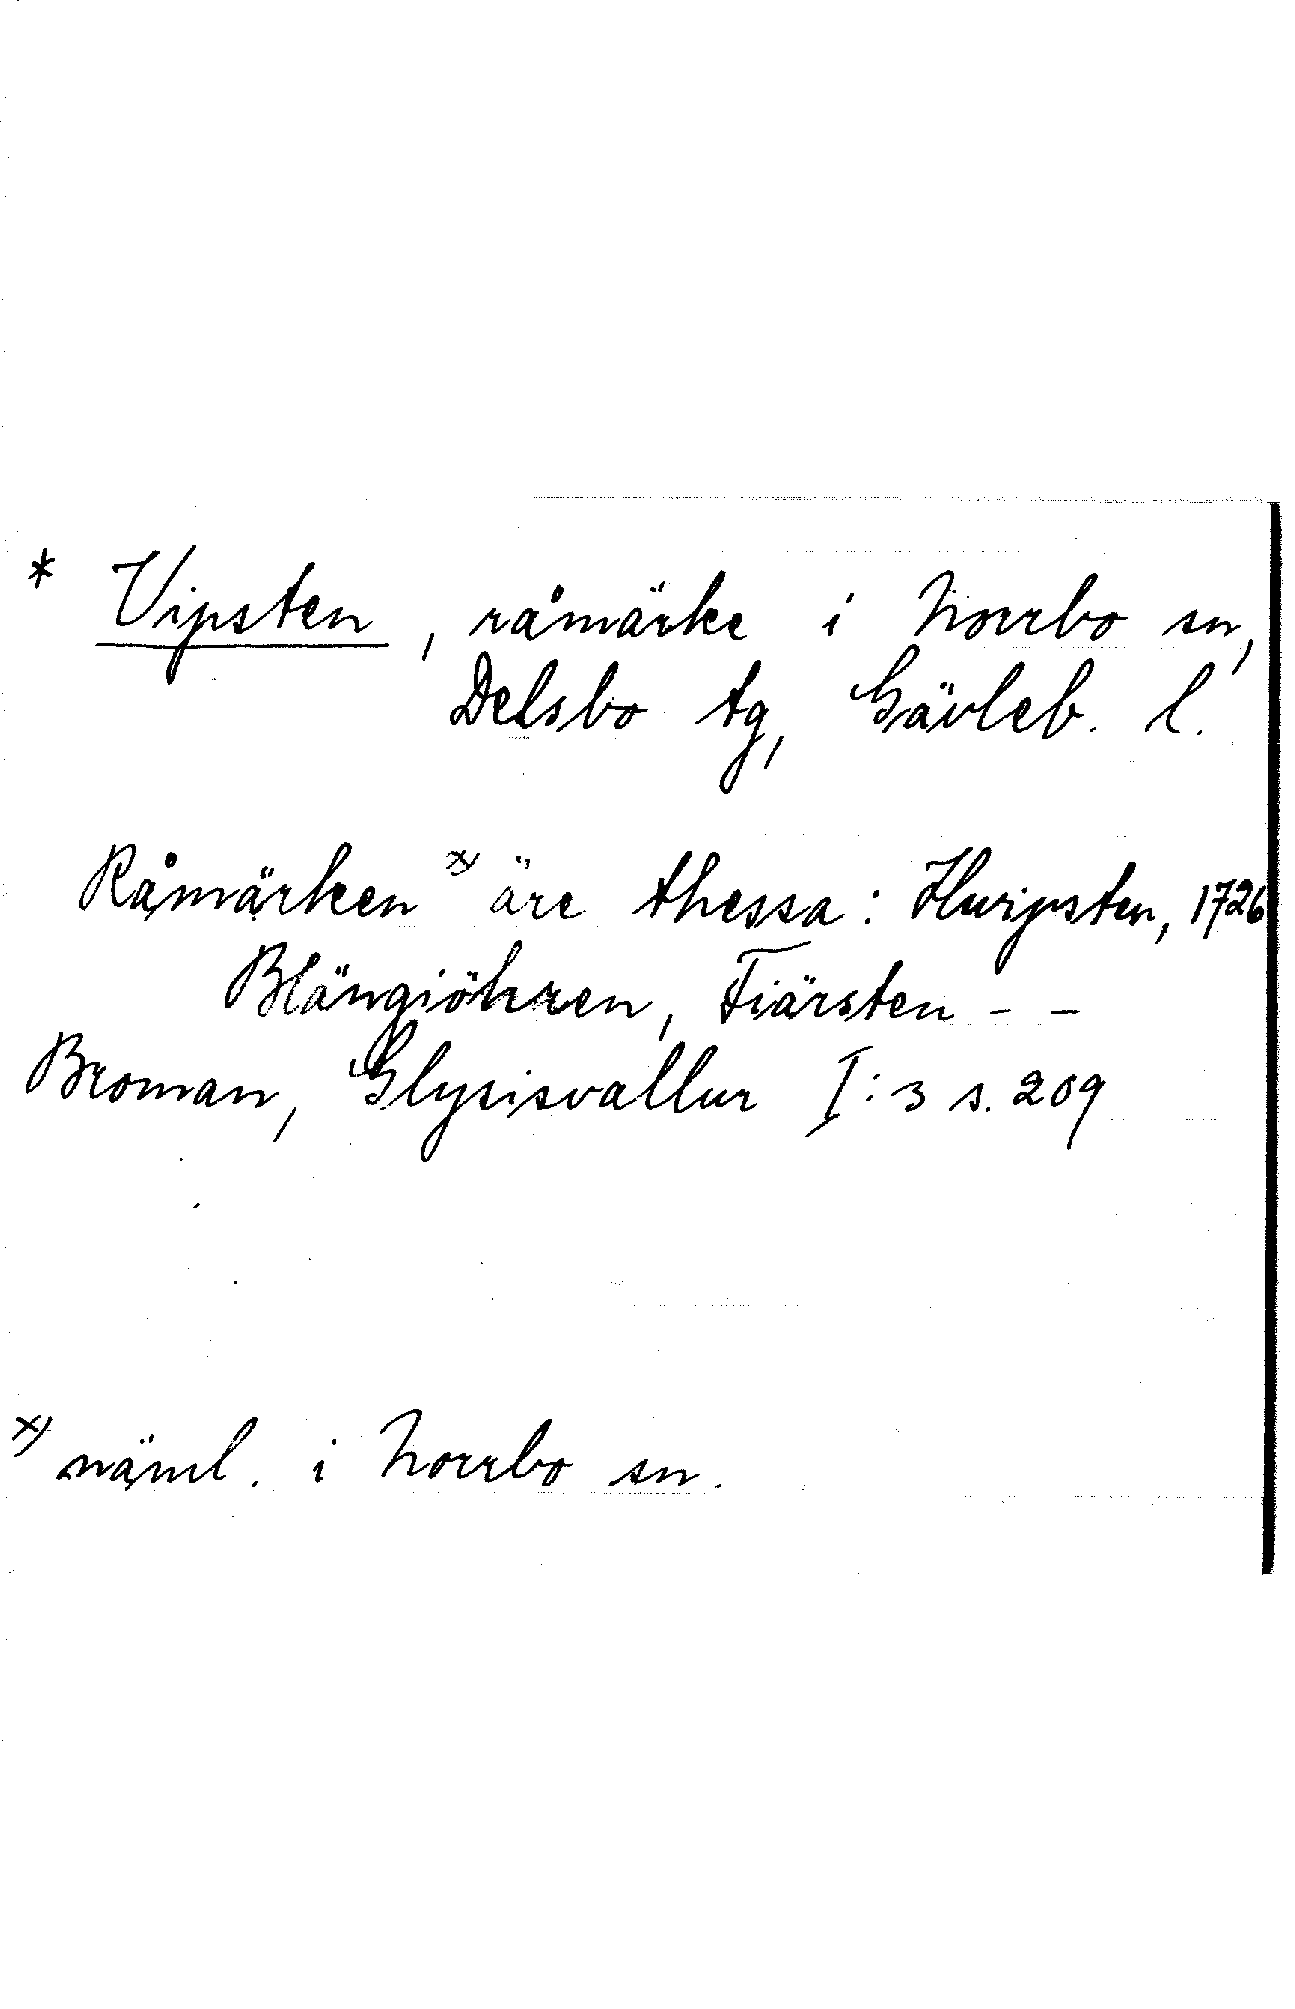 * Vipsten, råmärke i Norrbo sn,
Delsbo tg, Gävleb. l.
Råmärken x) äre thessa: Hwipsten, 1726
Blängiöhren, Fiärsten - -
Broman, Glysisvallur I:3 s. 209
x) näml. i Norrbo sn.